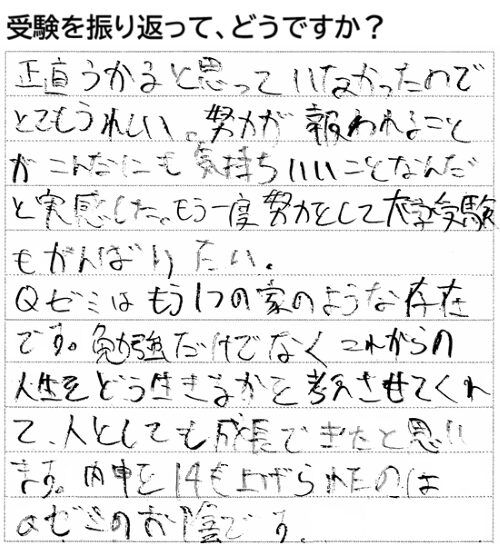 受験を振り返って、どうですか？
正直うかると思っていなかったので
とてもうれしい。努力が報われること
がこんなにも気持ちいいことなんだ
と実感した。もう一度努力をして大学受験
もがんばりたい。
Qゼミはもう1つの家のような存在
です。勉強だけでなくこれからの
人生をどう生きるかを考えさせてくれ
て、人としても成長できたと思い
ます。内申を14も上げられたのは
Qゼミのお陰です。